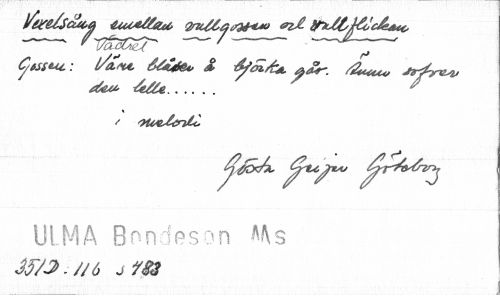 Vexelsång emellan vallgossen och vallflickan
Vädret
Gossen: Våre blåser å björka går. Ännu sofver
den lelle......
i melodi
Gösta Geijer Göteborg
ULMA Bondeson Ms
351D:116 s 483